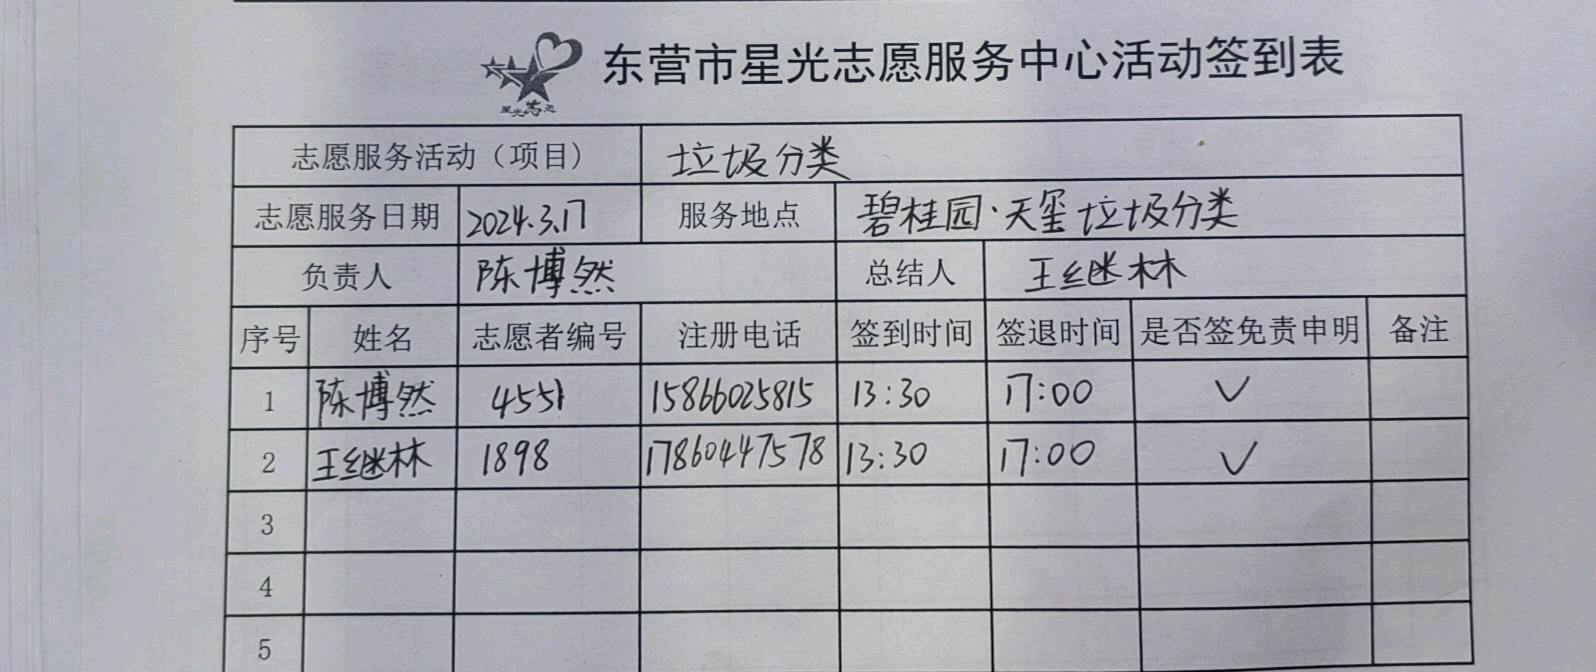 星光志愿
东营市星光志愿服务中心活动签到表
志愿服务活动（项目） 垃圾分类
志愿服务日期 2024.3.17 服务地点 碧桂园·天玺垃圾分类
负责人 陈博然 总结人 王继林
序号 姓名 志愿者编号 注册电话 签到时间 签退时间 是否签免责申明 备注
1 陈博然 4551 15866025815 13:30 17:00 ✓
2 王继林 1898 17860447578 13:30 17:00 ✓
3
4
5